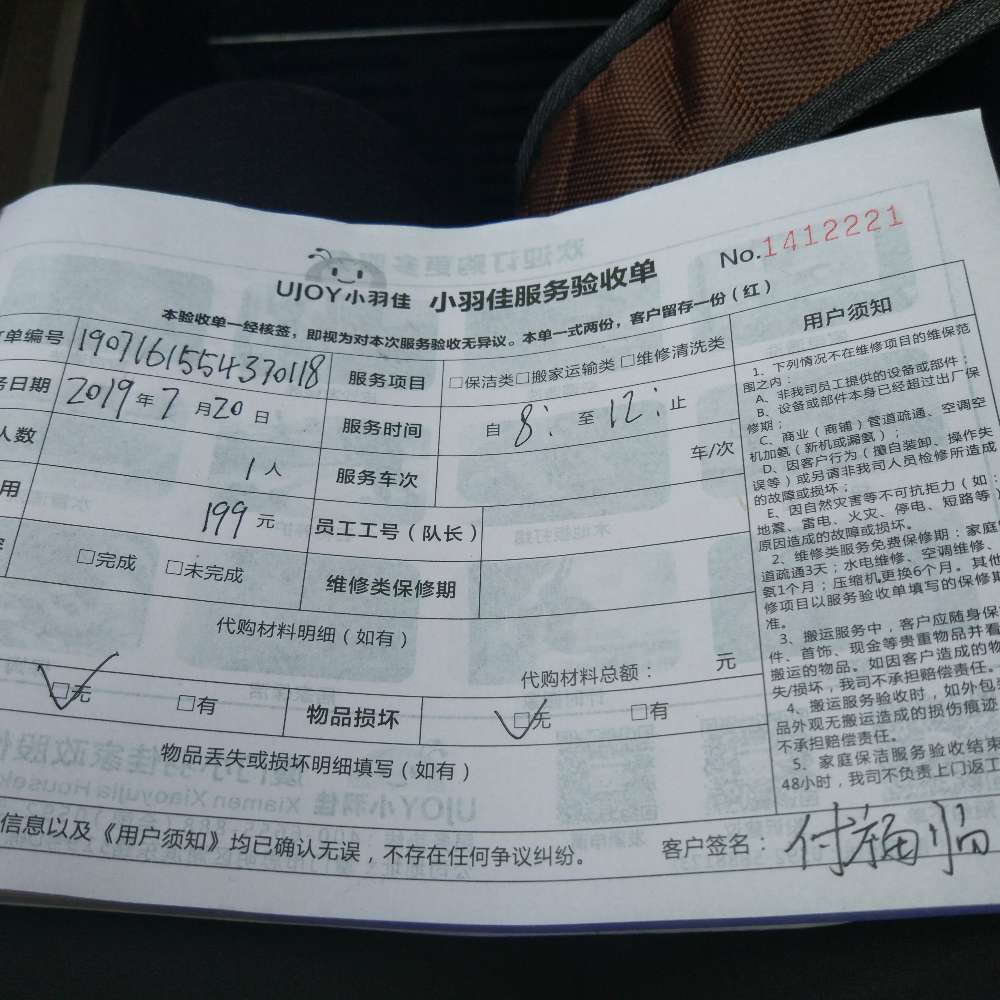 UJOY小羽佳 小羽佳服务验收单
No.1412221
本验收单一经核签，即视为对本次服务验收无异议。本单一式两份，客户留存一份（红）
单编号 1907161554370118 服务项目 □保洁类□搬家运输类 □维修清洗类
日期 2019年7月20日 服务时间 自 8: 至 12: 止
人数 1人 服务车次 车/次
用 199元 员工工号（队长）
□完成 □未完成 维修类保修期
代购材料明细（如有）
代购材料总额： 元
□无 □有 物品损坏 □无 □有
物品丢失或损坏明细填写（如有）
信息以及《用户须知》均已确认无误，不存在任何争议纠纷。 客户签名：
用户须知
1、下列情况不在维修项目的维保范
围之内：
A、非我司员工提供的设备或部件；
B、设备或部件本身已经超过出厂保
修期；
C、商业（商铺）管道疏通、空调空
机加氨（新机或漏氨）；
D、因客户行为（擅自装卸、操作失
误等）或另请非我司人员检修所造成
的故障或损坏；
E、因自然灾害等不可抗拒力（如：
地震、雷电、火灾、停电、短路等）
原因造成的故障或损坏。
2、维修类服务免费保修期：家庭
道疏通3天；水电维修、空调维修、
氨1个月；压缩机更换6个月。其他
修项目以服务验收单填写的保修期
准。
3、搬运服务中，客户应随身保
件、首饰、现金等贵重物品并看
搬运的物品。如因客户造成的物
失/损坏，我司不承担赔偿责任。
4、搬运服务验收时，如外包
品外观无搬运造成的损伤痕迹
不承担赔偿责任。
5、家庭保洁服务验收结束
48小时，我司不负责上门返工